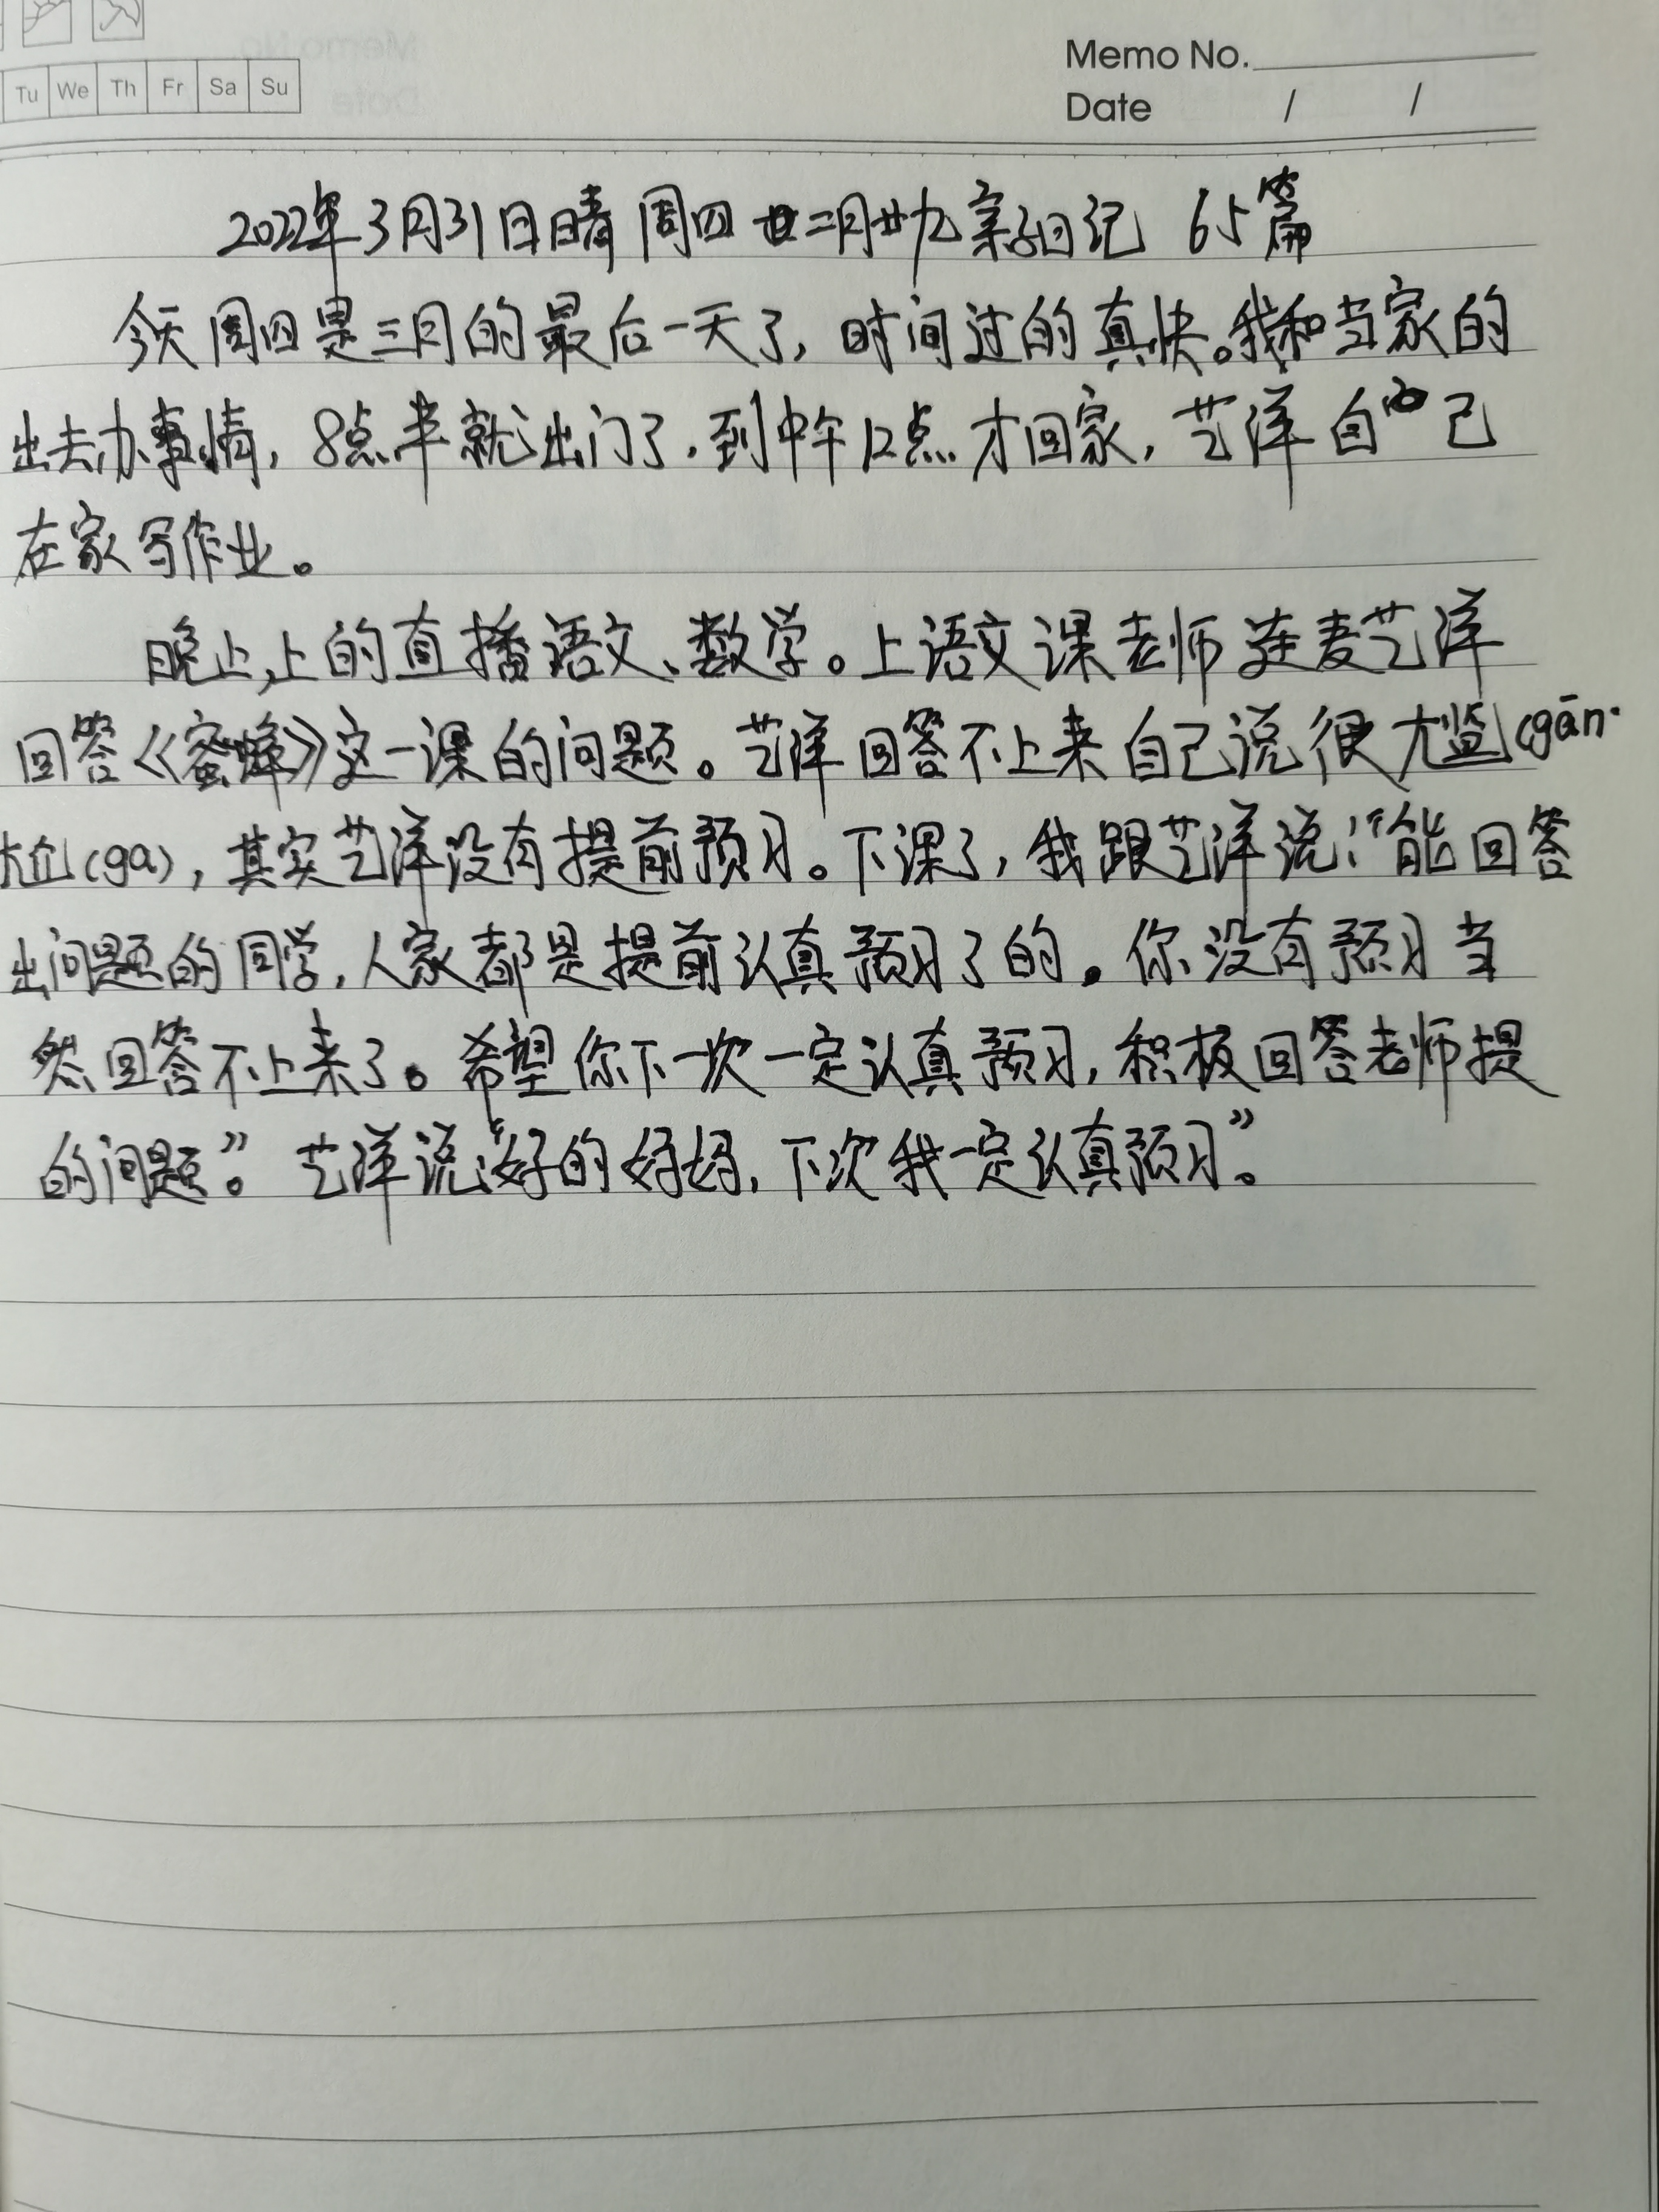 Memo No.
Tu We Th Fr Sa Su
Date / /
2022年3月31日晴 周四 二月廿九亲子日记 65篇
今天周四是三月的最后一天了,时间过的真快。我和当家的
出去办事情,8点半就出门了.到中午12点才回家,艺洋自己
在家写作业。
晚上,上的直播语文、数学。上语文课老师连麦艺洋
回答《蜜蜂》这一课的问题。艺洋回答不上来自己说很尴(gān.
尬(ga),其实艺洋没有提前预习。下课了,我跟艺洋说:“能回答
出问题的同学,人家都是提前认真预习了的。你没有预习当
然回答不上来了。希望你下一次一定认真预习,积极回答老师提
的问题”。艺洋说:“好的妈妈,下次我一定认真预习”。